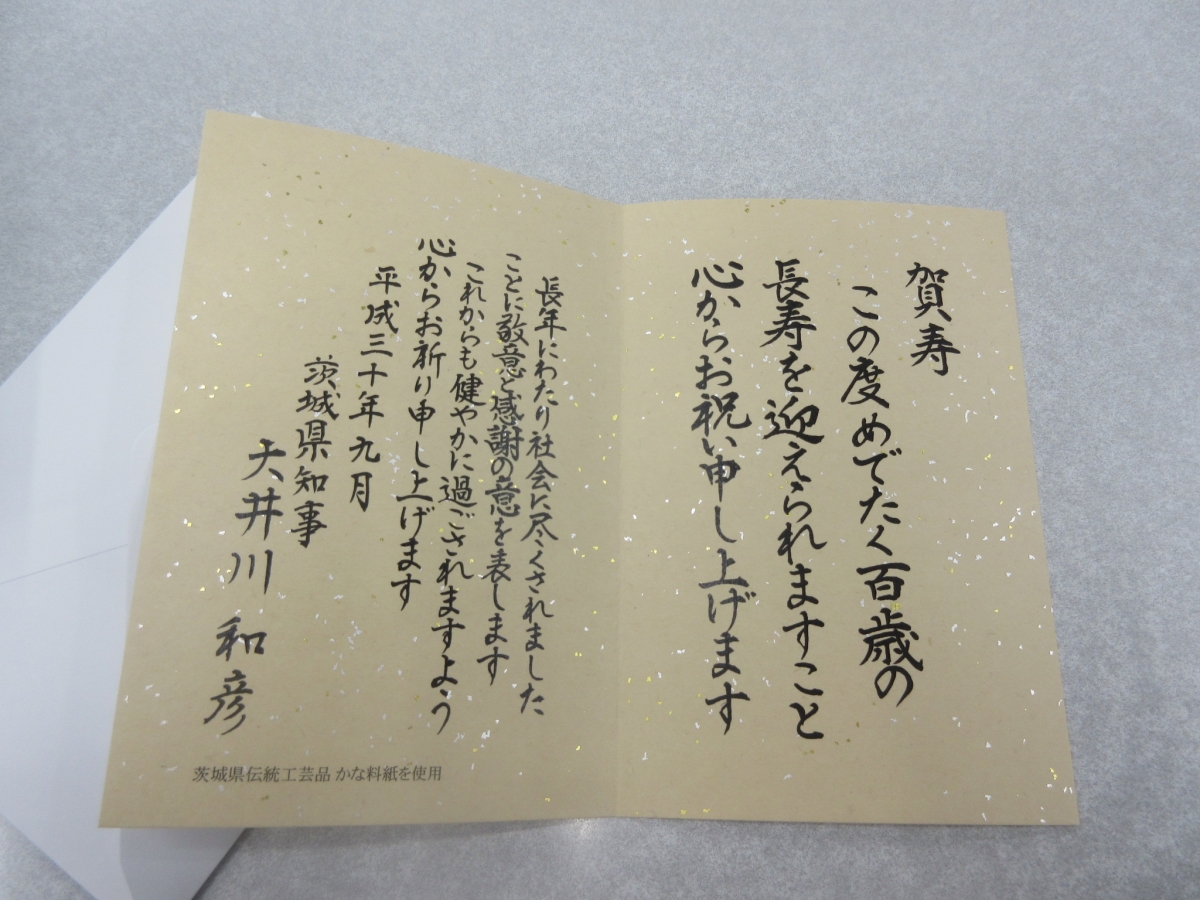 賀寿
この度めでたく百歳の
長寿を迎えられますこと
心からお祝い申し上げます
長年にわたり社会に尽くされました
ことに敬意と感謝の意を表します
これからも健やかに過ごされますよう
心からお祈り申し上げます
平成三十年九月
茨城県知事
大井川 和彦
茨城県伝統工芸品 かな料紙を使用